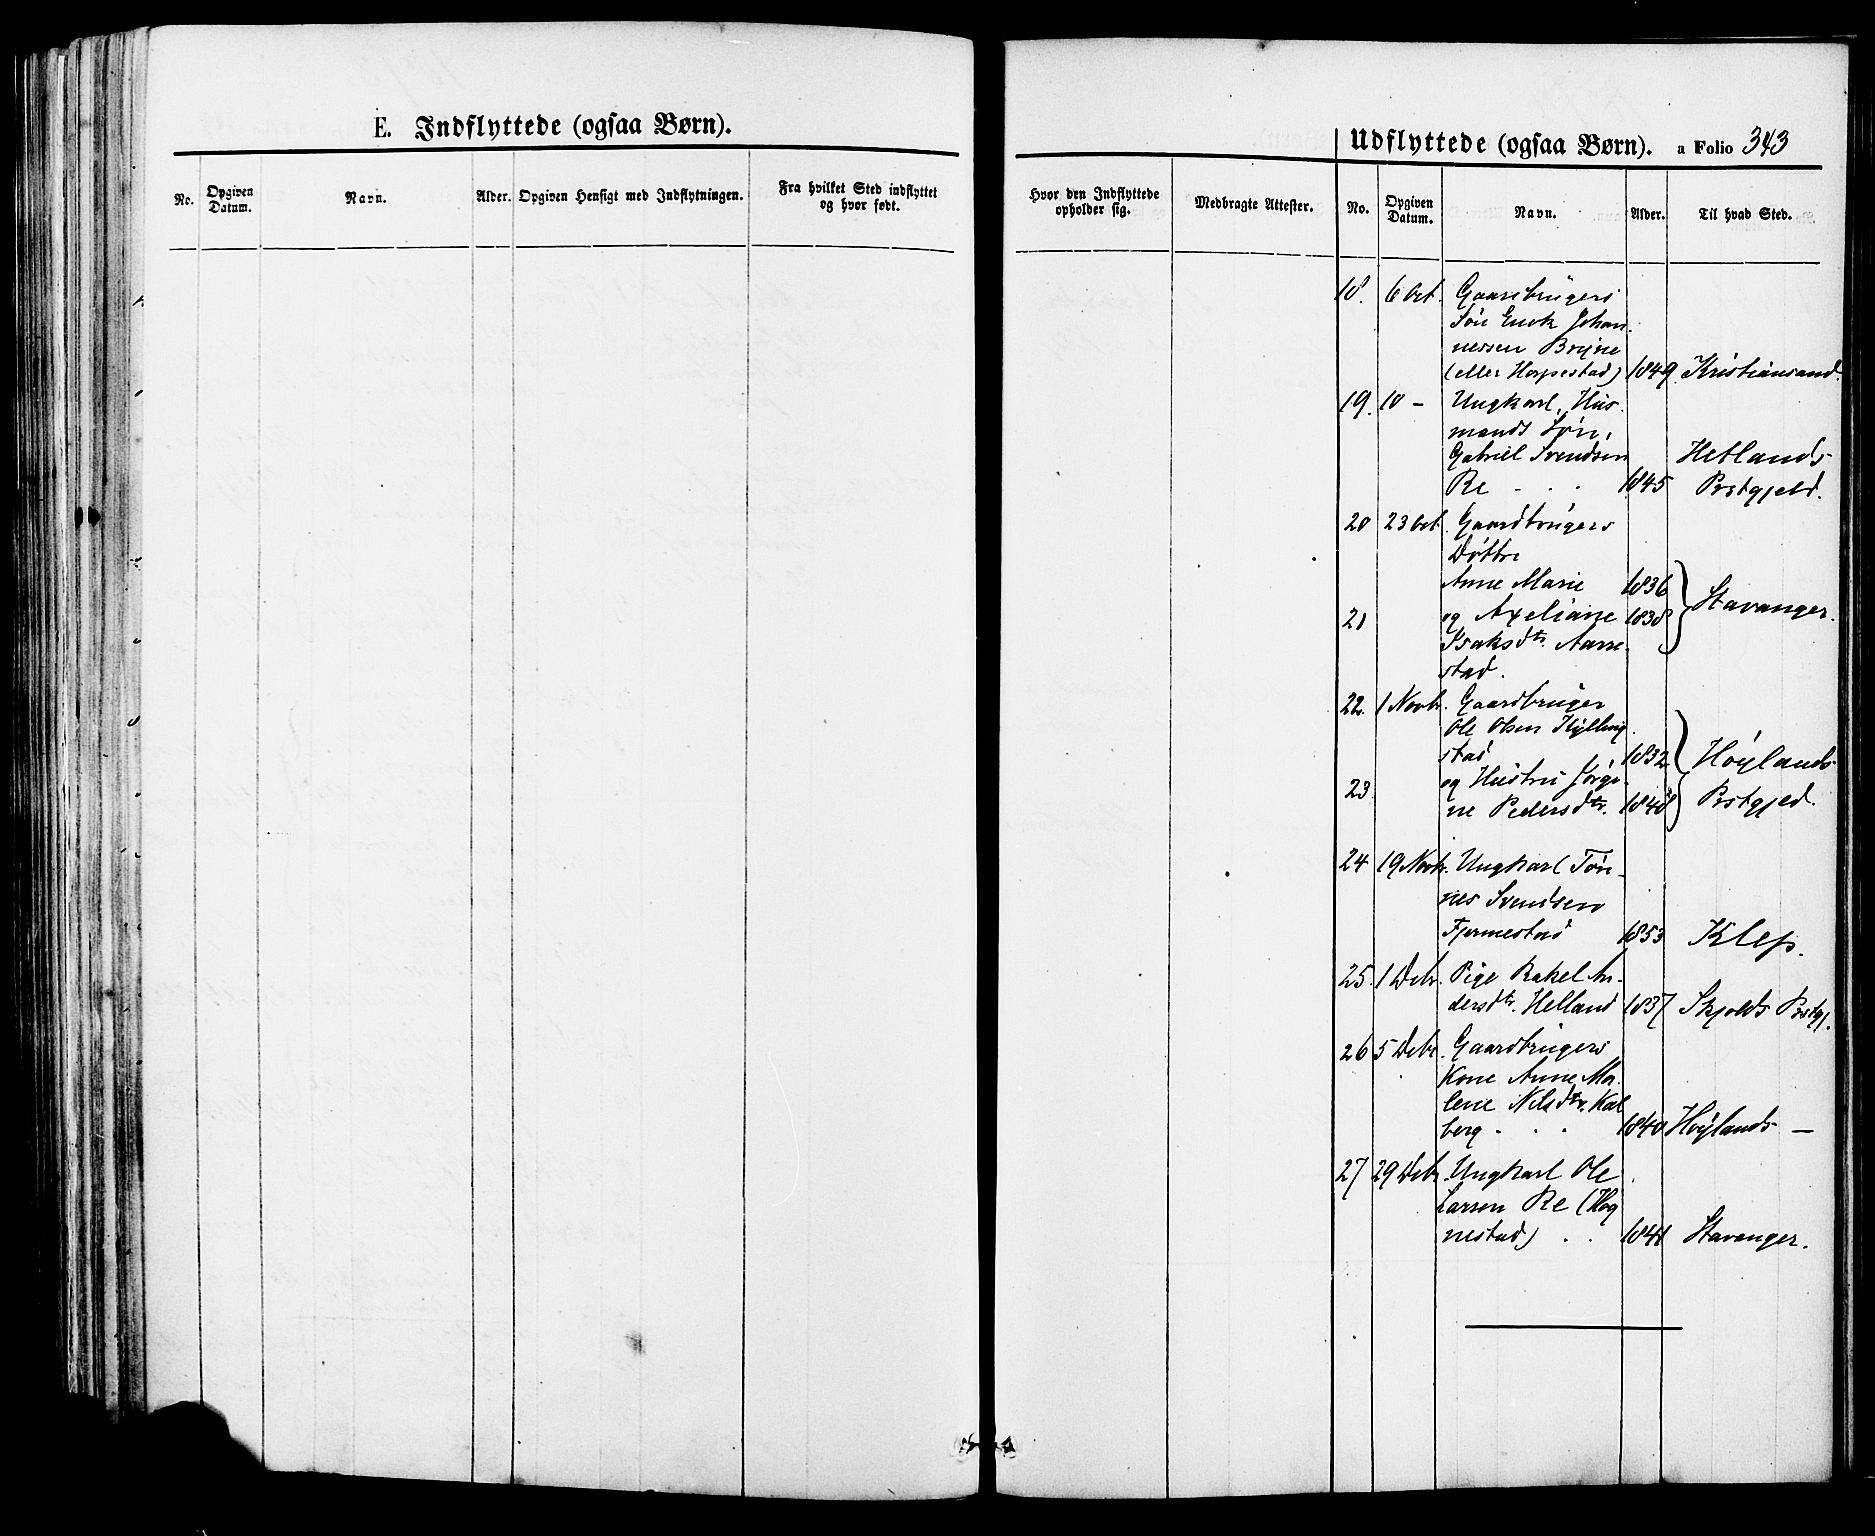 E. Indflyttede (ogsaa Børn).
No. Opgiven Datum. Navn. Alder. Opgiven Hensigt med Indflytningen. Fra hvilket Sted indflyttet og hvor født.
Udflyttede (ogsaa Børn). a Folio 343
Hvor den Indflyttede opholder sig. Medbragte Attester. No. Opgiven Datum. Navn. Alder. Til hvad Sted.
18. 6 Oct. Gaardbrugers
Søn Enok Johan-
nessen Bryne
(eller Horpestad) 1849. Kristiansand.
19. 10 - Ungkarl, Hus-
mands Søn,
Gabriel Svendsen Hetlands-
Re - . . 1845 Prstgjeld.
20 23 Oct. Gaardbrugers
Døttre
Anne Marie 1836
21 og Axeliane 1838 } Stavanger.
Isaksdtr. Aarre-
stad.
22. 1 Novbr. Gaardbruger
Ole Olsen Kylling-
stad 1832 } Høylands
23. og Hustru Jørgi-
ne Pedersdtr. 1848 } Prstgjed.
24 19 Novbr. Ungkarl Tøn-
nes Svendsen
Fjermestad 1853 Klep.
25. 1 Debr. Pige Rakel An-
dersdtr. Helland 1837 Skjolds Prstgj.
26 5 Debr. Gaardbrugers
Kone Anne Ma-
lene Nilsdtr. Kal-
berg - . . 1840 Høylands -
27 29 Debr. Ungkarl Ole
Larsen Re (Hog-
nestad) . . 1841 Stavanger.